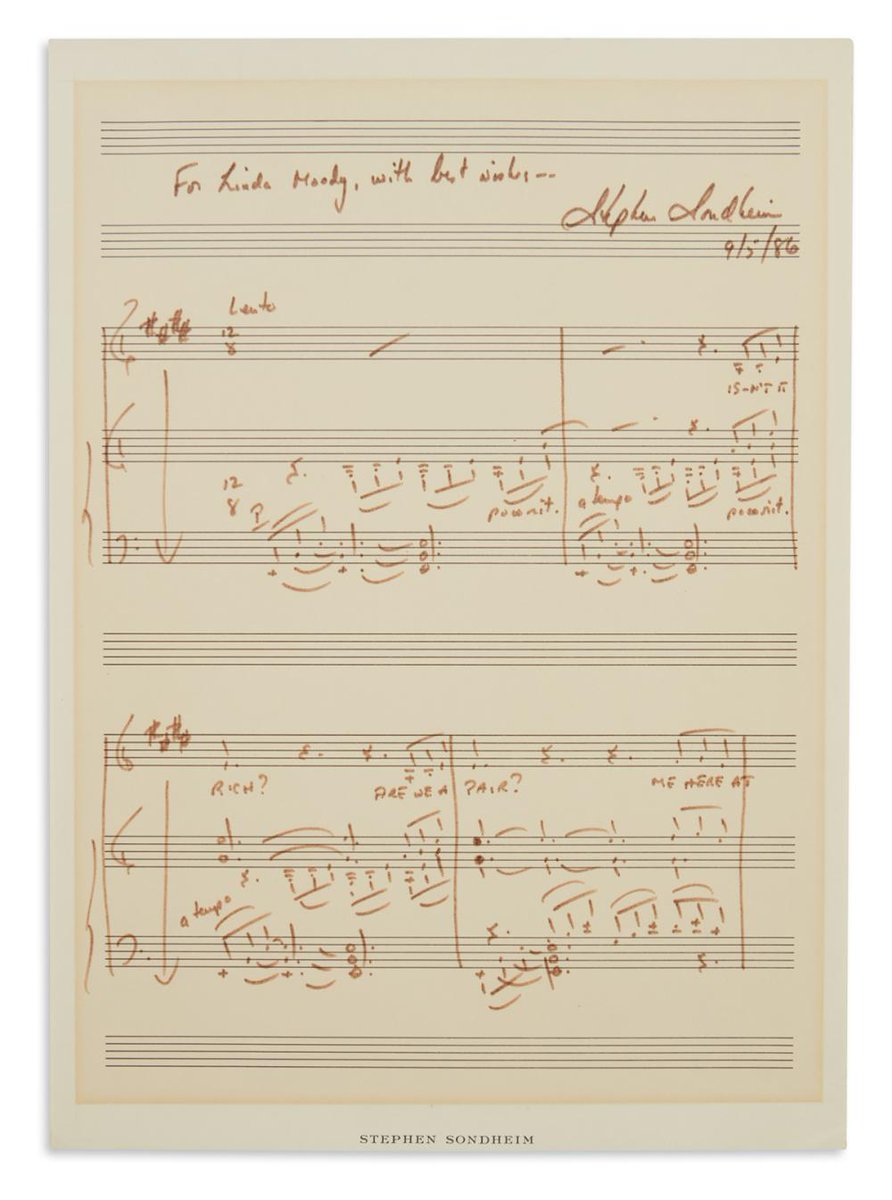 For Linda Moody, with best wishes--
Stephen Sondheim
9/5/86
Lento
12
8
IS-N'T IT
12
8
P
poco rit.
a tempo
poco rit.
RICH?
ARE WE A
PAIR?
ME HERE AT
a tempo
STEPHEN SONDHEIM